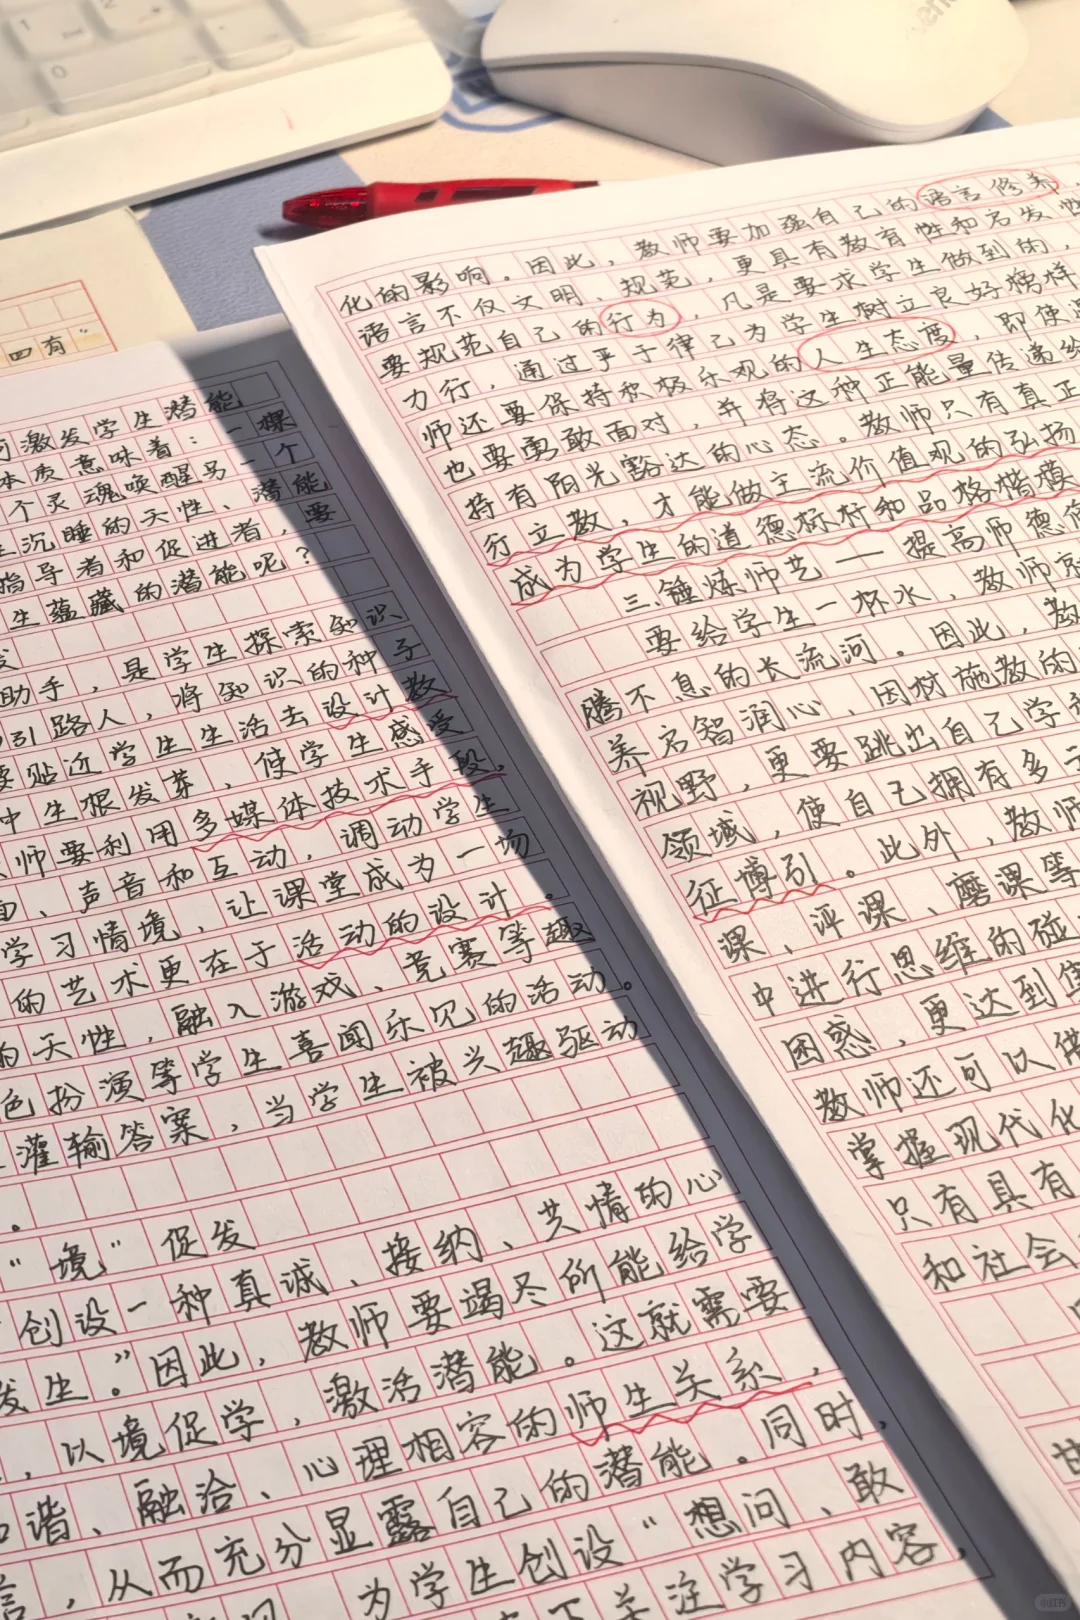 四有”
何激发学生潜能
本质意味着：一棵
个灵魂唤醒另一个
沉睡的天性、潜能
指导者和促进者，要
生蕴藏的潜能呢？
发
助手，是学生探索知识
引路人，将知识的种子
要贴近学生生活去设计教
中生根发芽，使学生感受
师要利用多媒体技术手段，
面、声音和互动，调动学生
学习情境，让课堂成为一场
的艺术更在于活动的设计。
的天性，融入游戏、竞赛等趣
色扮演等学生喜闻乐见的活动。
灌输答案，当学生被兴趣驱动
。
“境”促发
创设一种真诚、接纳、共情的心
发生。”因此，教师要竭尽所能给学
，以境促学，激活潜能。这就需要
和谐、融洽、心理相容的师生关系，
言，从而充分显露自己的潜能。同时，
为学生创设“想问、敢
关注学习内容，
化的影响。因此，教师要加强自己的语言修养，
语言不仅文明、规范，更具有教育性和启发性
要规范自己的行为，凡是要求学生做到的，
力行，通过严于律己为学生树立良好榜样
师还要保持积极乐观的人生态度，即使遇
也要勇敢面对，并将这种正能量传递给
持有阳光豁达的心态。教师只有真正
行立教，才能做主流价值观的弘扬
成为学生的道德标杆和品格楷模
三、锤炼师艺——提高师德修
要给学生一杯水，教师京
腾不息的长流河。因此，教
养启智润心、因材施教的
视野，更要跳出自己学科
领域，使自己拥有多元
征博引。此外，教师
课、评课、磨课等
中进行思维的碰
困惑，更达到集
教师还可以借
掌握现代化
只有具有
和社会